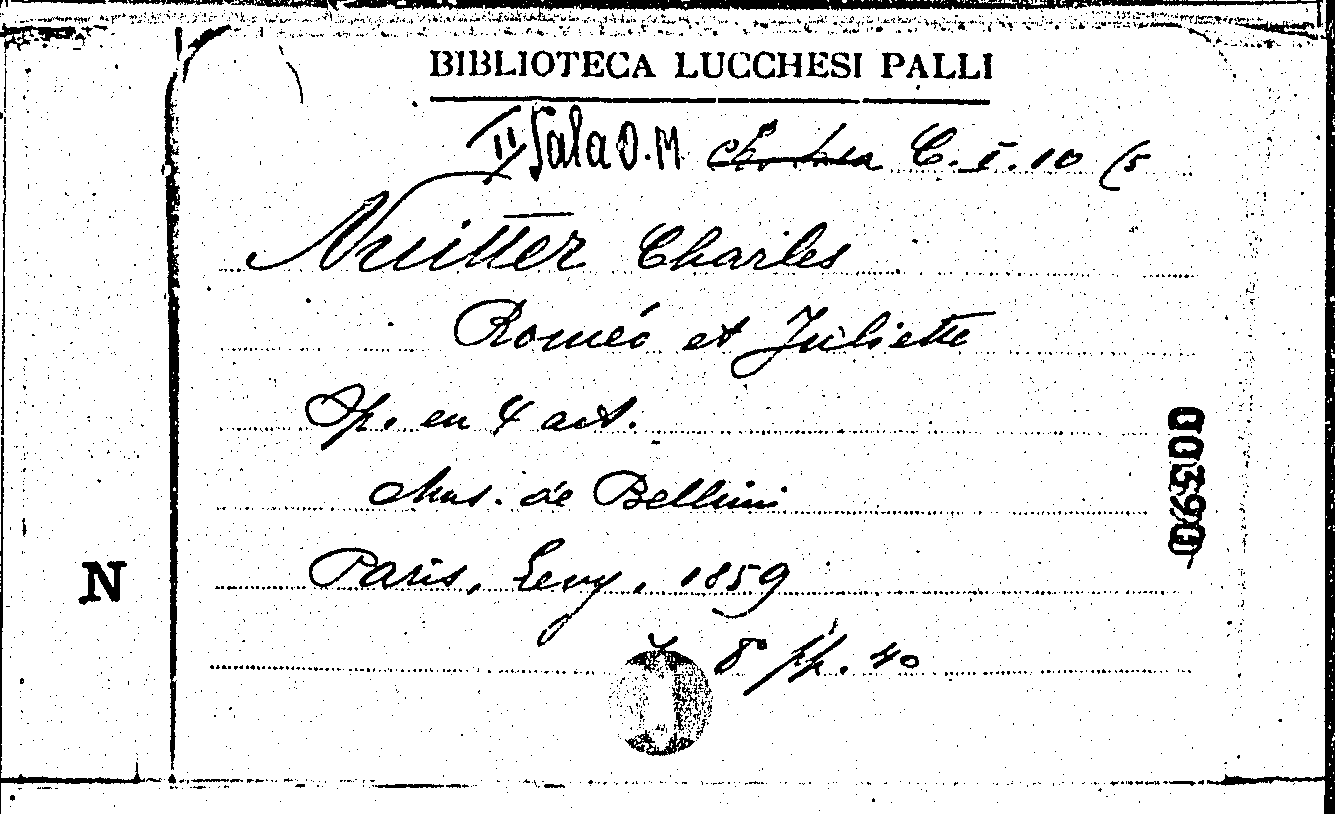 BIBLIOTECA LUCCHESI PALLI
II Sala O.M C. I. 10 (5
Nuitter Charles
Roméo et Juliette
Op. en 4 act.
Mus. de Bellini
Paris, Levy, 1859
8° pp. 40
N